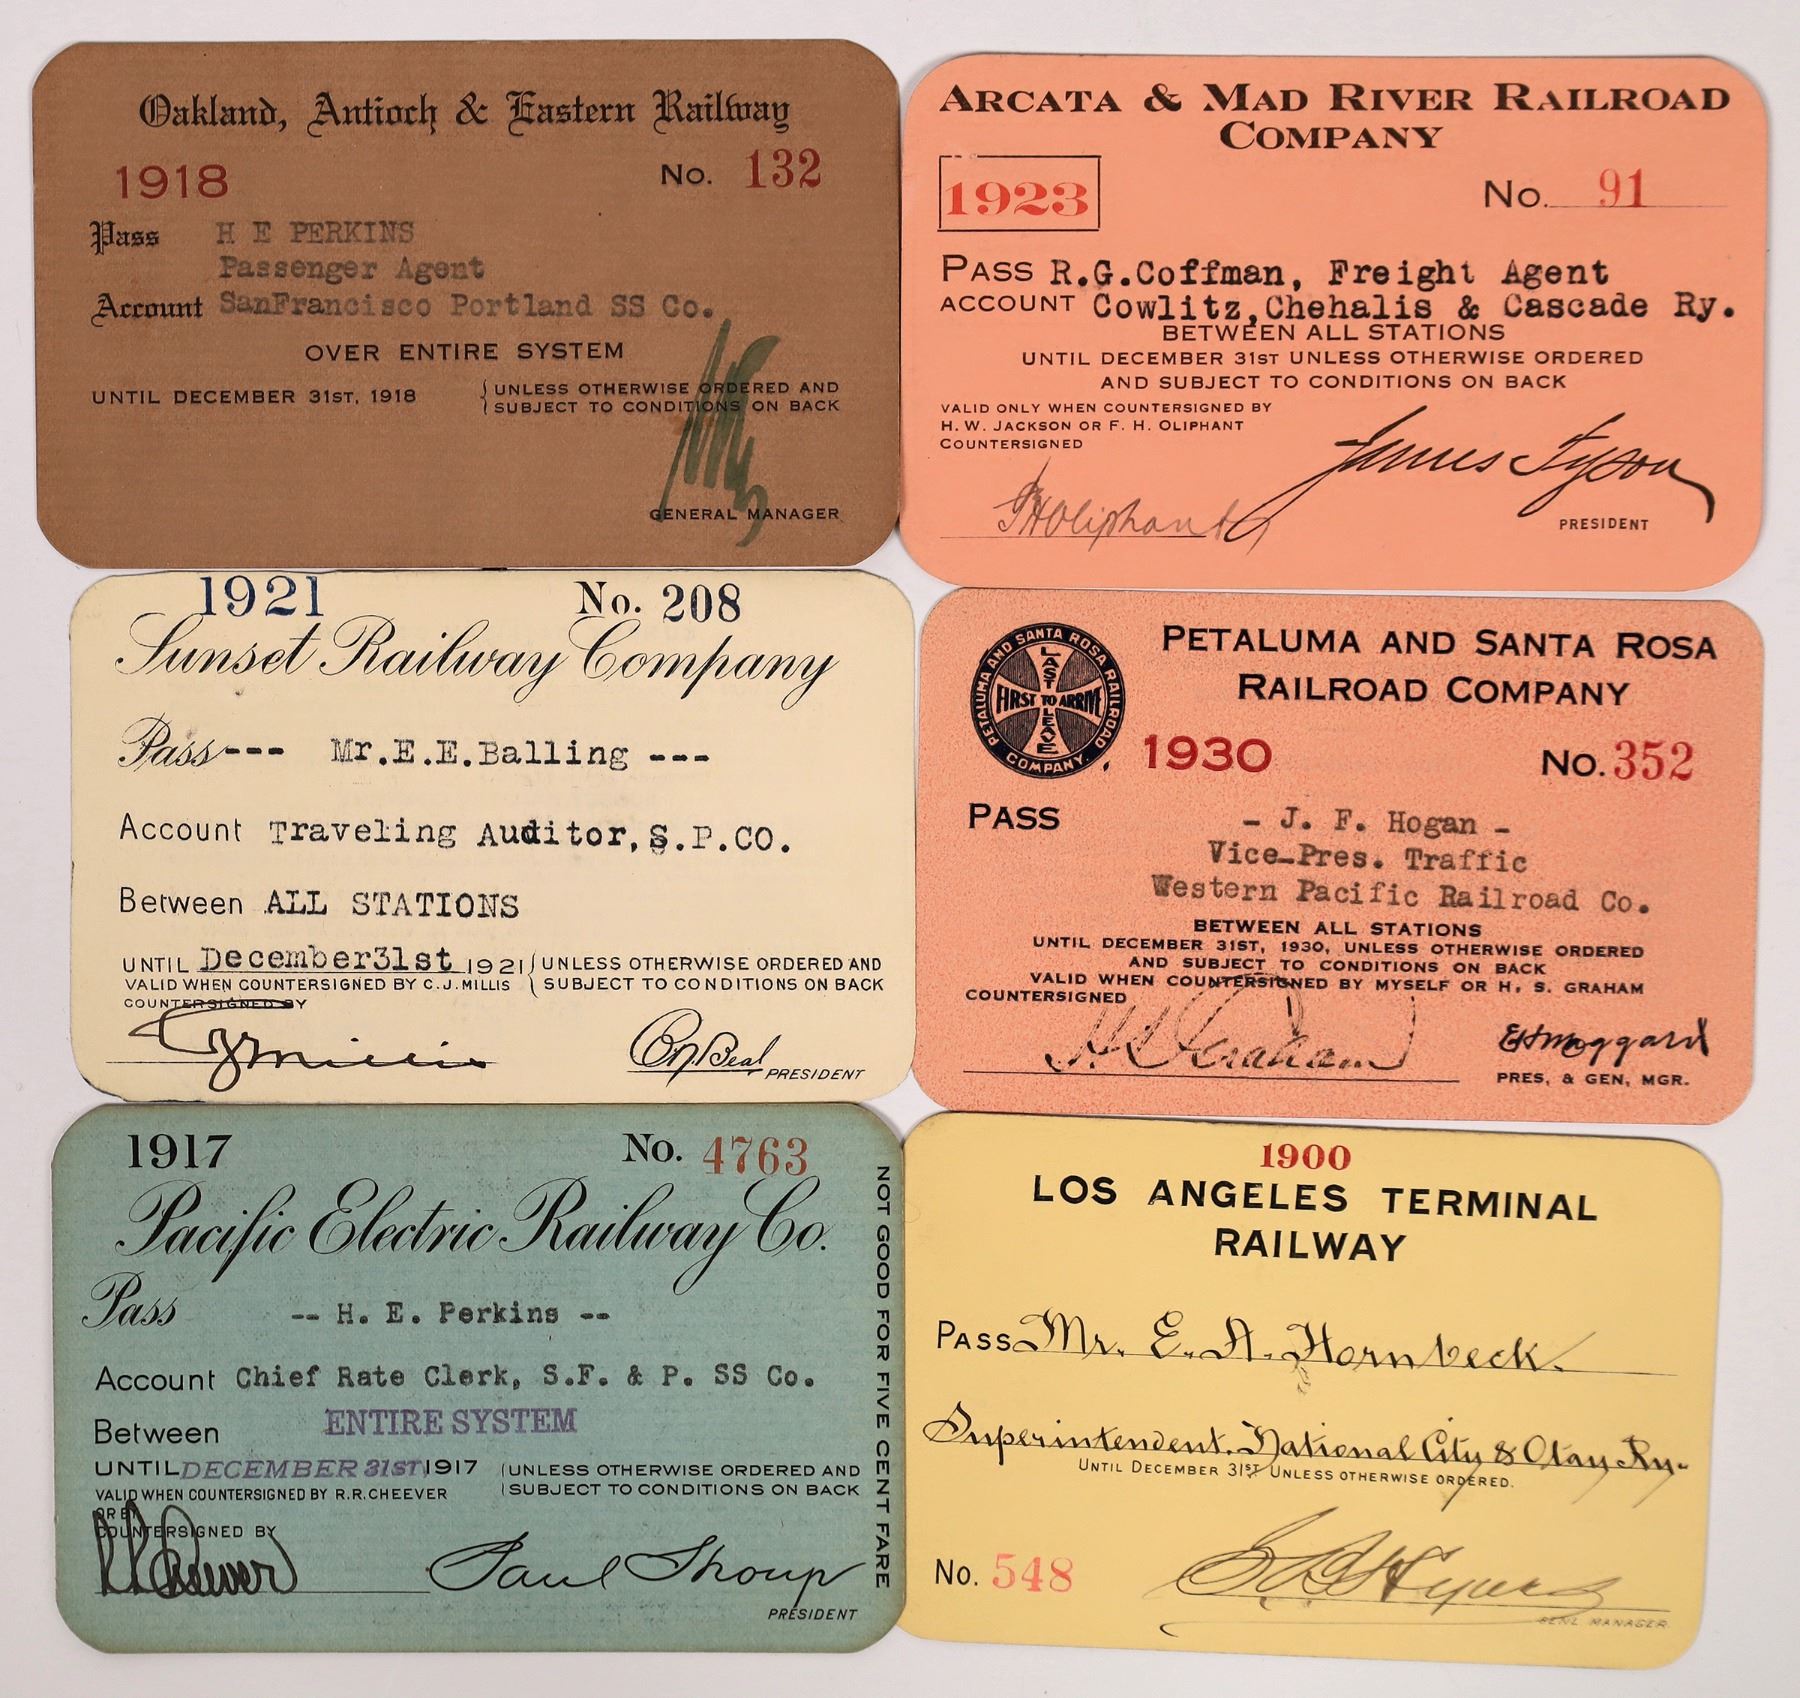 Oakland, Antioch & Eastern Railway
1918 No. 132
Pass H E PERKINS
Passenger Agent
Account SanFrancisco Portland SS Co.
OVER ENTIRE SYSTEM
UNTIL DECEMBER 31ST, 1918 { UNLESS OTHERWISE ORDERED AND
SUBJECT TO CONDITIONS ON BACK
GENERAL MANAGER
ARCATA & MAD RIVER RAILROAD
COMPANY
1923
No. 91
PASS R.G.Coffman, Freight Agent
ACCOUNT Cowlitz,Chehalis & Cascade Ry.
BETWEEN ALL STATIONS
UNTIL DECEMBER 31ST UNLESS OTHERWISE ORDERED
AND SUBJECT TO CONDITIONS ON BACK
VALID ONLY WHEN COUNTERSIGNED BY
H. W. JACKSON OR F. H. OLIPHANT
COUNTERSIGNED
James Tyson
FHOliphant
PRESIDENT
1921 No. 208
Sunset Railway Company
Pass--- Mr.E.E.Balling ---
Account Traveling Auditor,S.P.CO.
Between ALL STATIONS
UNTIL December31st 1921 { UNLESS OTHERWISE ORDERED AND
VALID WHEN COUNTERSIGNED BY C.J.MILLIS SUBJECT TO CONDITIONS ON BACK
COUNTERSIGNED BY
CJMillis
PRESIDENT
PETALUMA AND SANTA ROSA RAILROAD
COMPANY
LAST TO LEAVE
FIRST TO ARRIVE
PETALUMA AND SANTA ROSA
RAILROAD COMPANY
1930 No. 352
PASS - J. F. Hogan -
Vice-Pres. Traffic
Western Pacific Railroad Co.
BETWEEN ALL STATIONS
UNTIL DECEMBER 31ST, 1930, UNLESS OTHERWISE ORDERED
AND SUBJECT TO CONDITIONS ON BACK
VALID WHEN COUNTERSIGNED BY MYSELF OR H. S. GRAHAM
COUNTERSIGNED
H. S. Graham
EHMaggard
PRES, & GEN, MGR.
1917 No. 4763
Pacific Electric Railway Co.
Pass -- H. E. Perkins --
Account Chief Rate Clerk, S.F. & P. SS Co.
Between ENTIRE SYSTEM
UNTIL DECEMBER 31ST, 1917 { UNLESS OTHERWISE ORDERED AND
VALID WHEN COUNTERSIGNED BY R.R.CHEEVER SUBJECT TO CONDITIONS ON BACK
OR BY
COUNTERSIGNED BY
RRCheever
Paul Shoup
PRESIDENT
NOT GOOD FOR FIVE CENT FARE
1900
LOS ANGELES TERMINAL
RAILWAY
PASS Mr. E. A. Hornbeck.
Superintendent. National City & Otay Ry.
UNTIL DECEMBER 31ST UNLESS OTHERWISE ORDERED.
No. 548
GENL MANAGER